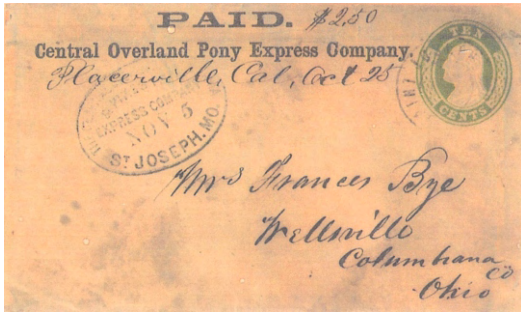 PAID. $2,50
Central Overland Pony Express Company.
Placerville, Cal, Oct 25
EXPRESS COMPANY
NOV 5
ST JOSEPH. MO.
TEN
CENTS
Mrs Frances Bye
Wellsville
Columbiana
Co
Ohio